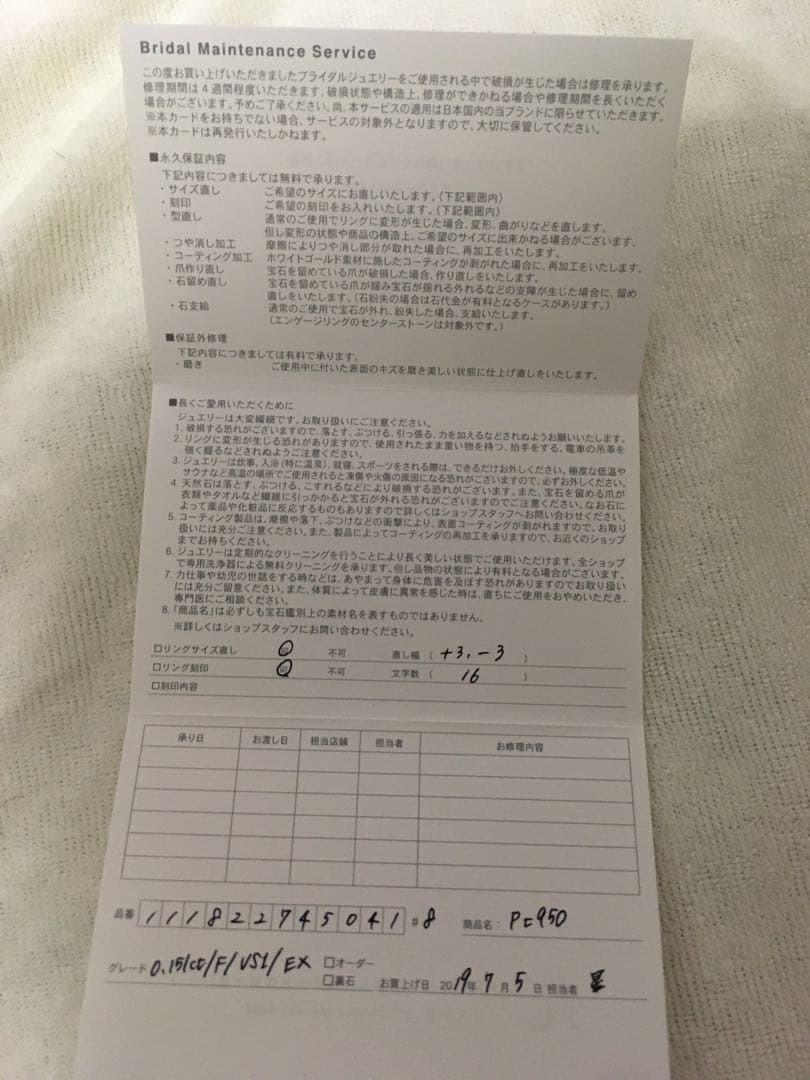 Bridal Maintenance Service
この度お買い上げいただきましたブライダルジュエリーをご使用される中で破損が生じた場合は修理を承ります。
修理期間は4週間程度いただきます。破損状態や構造上、修理ができかねる場合や修理期間を長くいただく
場合がございます。予めご了承ください。尚、本サービスの適用は日本国内の当ブランドに限らせていただきます。
※本カードをお持ちでない場合、サービスの対象外となりますので、大切に保管してください。
※本カードは再発行いたしかねます。
■永久保証内容
下記内容につきましては無料で承ります。
・サイズ直し ご希望のサイズにお直しいたします。(下記範囲内)
・刻印 ご希望の刻印をお入れいたします。(下記範囲内)
・型直し 通常のご使用でリングに変形が生じた場合、変形、曲がりなどを直します。
但し変形の状態や商品の構造上、ご希望のサイズに出来かねる場合がございます。
・つや消し加工 摩擦によりつや消し部分が取れた場合に、再加工をいたします。
・コーティング加工 ホワイトゴールド素材に施したコーティングが剥がれた場合に、再加工をいたします。
・爪作り直し 宝石を留めている爪が破損した場合、作り直しをいたします。
・石留め直し 宝石を留めている爪が緩み宝石が揺れる外れるなどの支障が生じた場合に、留め
直しをいたします。(石紛失の場合は石代金が有料となるケースがあります。)
・石支給 通常のご使用で宝石が外れ、紛失した場合、支給いたします。
(エンゲージリングのセンターストーンは対象外です。)
■保証外修理
下記内容につきましては有料で承ります。
・磨き ご使用中に付いた表面のキズを磨き美しい状態に仕上げ直しをいたします。
■長くご愛用いただくために
ジュエリーは大変繊細です。お取り扱いにご注意ください。
1. 破損する恐れがございますので、落とす、ぶつける、引っ張る、力を加えるなどされぬようお願いいたします。
2. リングに変形が生じる恐れがありますので、使用されたまま重い物を持つ、拍手をする、電車の吊革を
強く握るなどされぬようご注意ください。
3. ジュエリーは炊事、入浴(特に温泉)、就寝、スポーツをされる際は、できるだけお外しください。極度な低温や
サウナなど高温の場所でご使用されると凍傷や火傷の原因になる恐れがございますので、必ずお外しください。
4. 天然石は落とす、ぶつける、こすれるなどにより破損する恐れがございます。また、宝石を留める爪が
衣類やタオルなど繊維に引っかかると宝石が外れる恐れがございますのでご注意ください。なお石に
よって薬品や化粧品に反応するものもありますので詳しくはショップスタッフへお問い合わせください。
5. コーティング製品は、摩擦や落下、ぶつけなどの衝撃により、表面コーティングが剥がれますので、お取り
扱いには充分ご注意ください。また、製品によってコーティングの再加工を承りますので、お近くのショップ
までお持ちください。
6. ジュエリーは定期的なクリーニングを行うことにより長く美しい状態でご使用いただけます。全ショップ
で専用洗浄器による無料クリーニングを承ります。但し品物の状態により有料となる場合がございます。
7. 力仕事や幼児の世話をする時などは、あやまって身体に危害を及ぼす恐れがありますのでお取り扱い
には充分ご留意ください。また、体質によって皮膚に異常を感じた時は、直ちにご使用をおやめいただき、
専門医にご相談ください。
8. 「商品名」は必ずしも宝石鑑別上の素材名を表すものではありません。
※詳しくはショップスタッフにお問い合わせください。
□リングサイズ直し 可 不可 直し幅 ( +3, -3 )
□リング刻印 可 不可 文字数 ( 16 )
□刻印内容
承り日 お渡し日 担当店舗 担当者 お修理内容
品番 111822745041 #8 商品名: Pt950
グレード 0.151ct/F/VS1/EX □オーダー
□裏石 お買上げ日 2019年 7月 5日 担当者